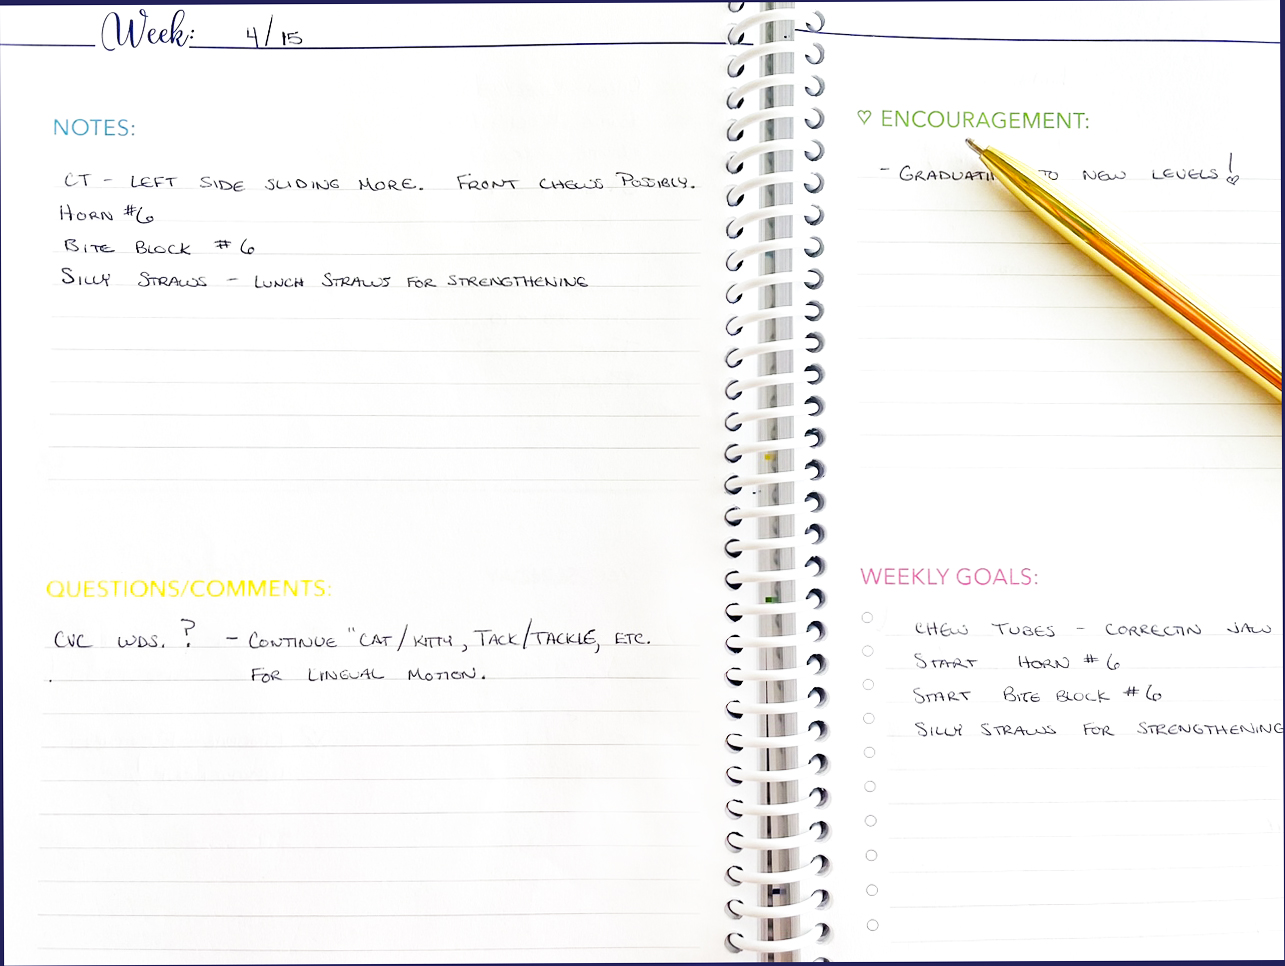 Week: 4/15
NOTES:
CT - LEFT SIDE SLIDING MORE. FRONT CHEWS POSSIBLY.
HORN #6
BITE BLOCK #6
SILLY STRAWS - LUNCH STRAWS FOR STRENGTHENING
QUESTIONS/COMMENTS:
CVC WDS. ? - CONTINUE "CAT/KITTY, TACK/TACKLE, ETC.
FOR LINGUAL MOTION.
♡ ENCOURAGEMENT:
- GRADUATI TO NEW LEVELS!
WEEKLY GOALS:
CHEW TUBES - CORRECTIN JAW
START HORN #6
START BITE BLOCK #6
SILLY STRAWS FOR STRENGTHENING